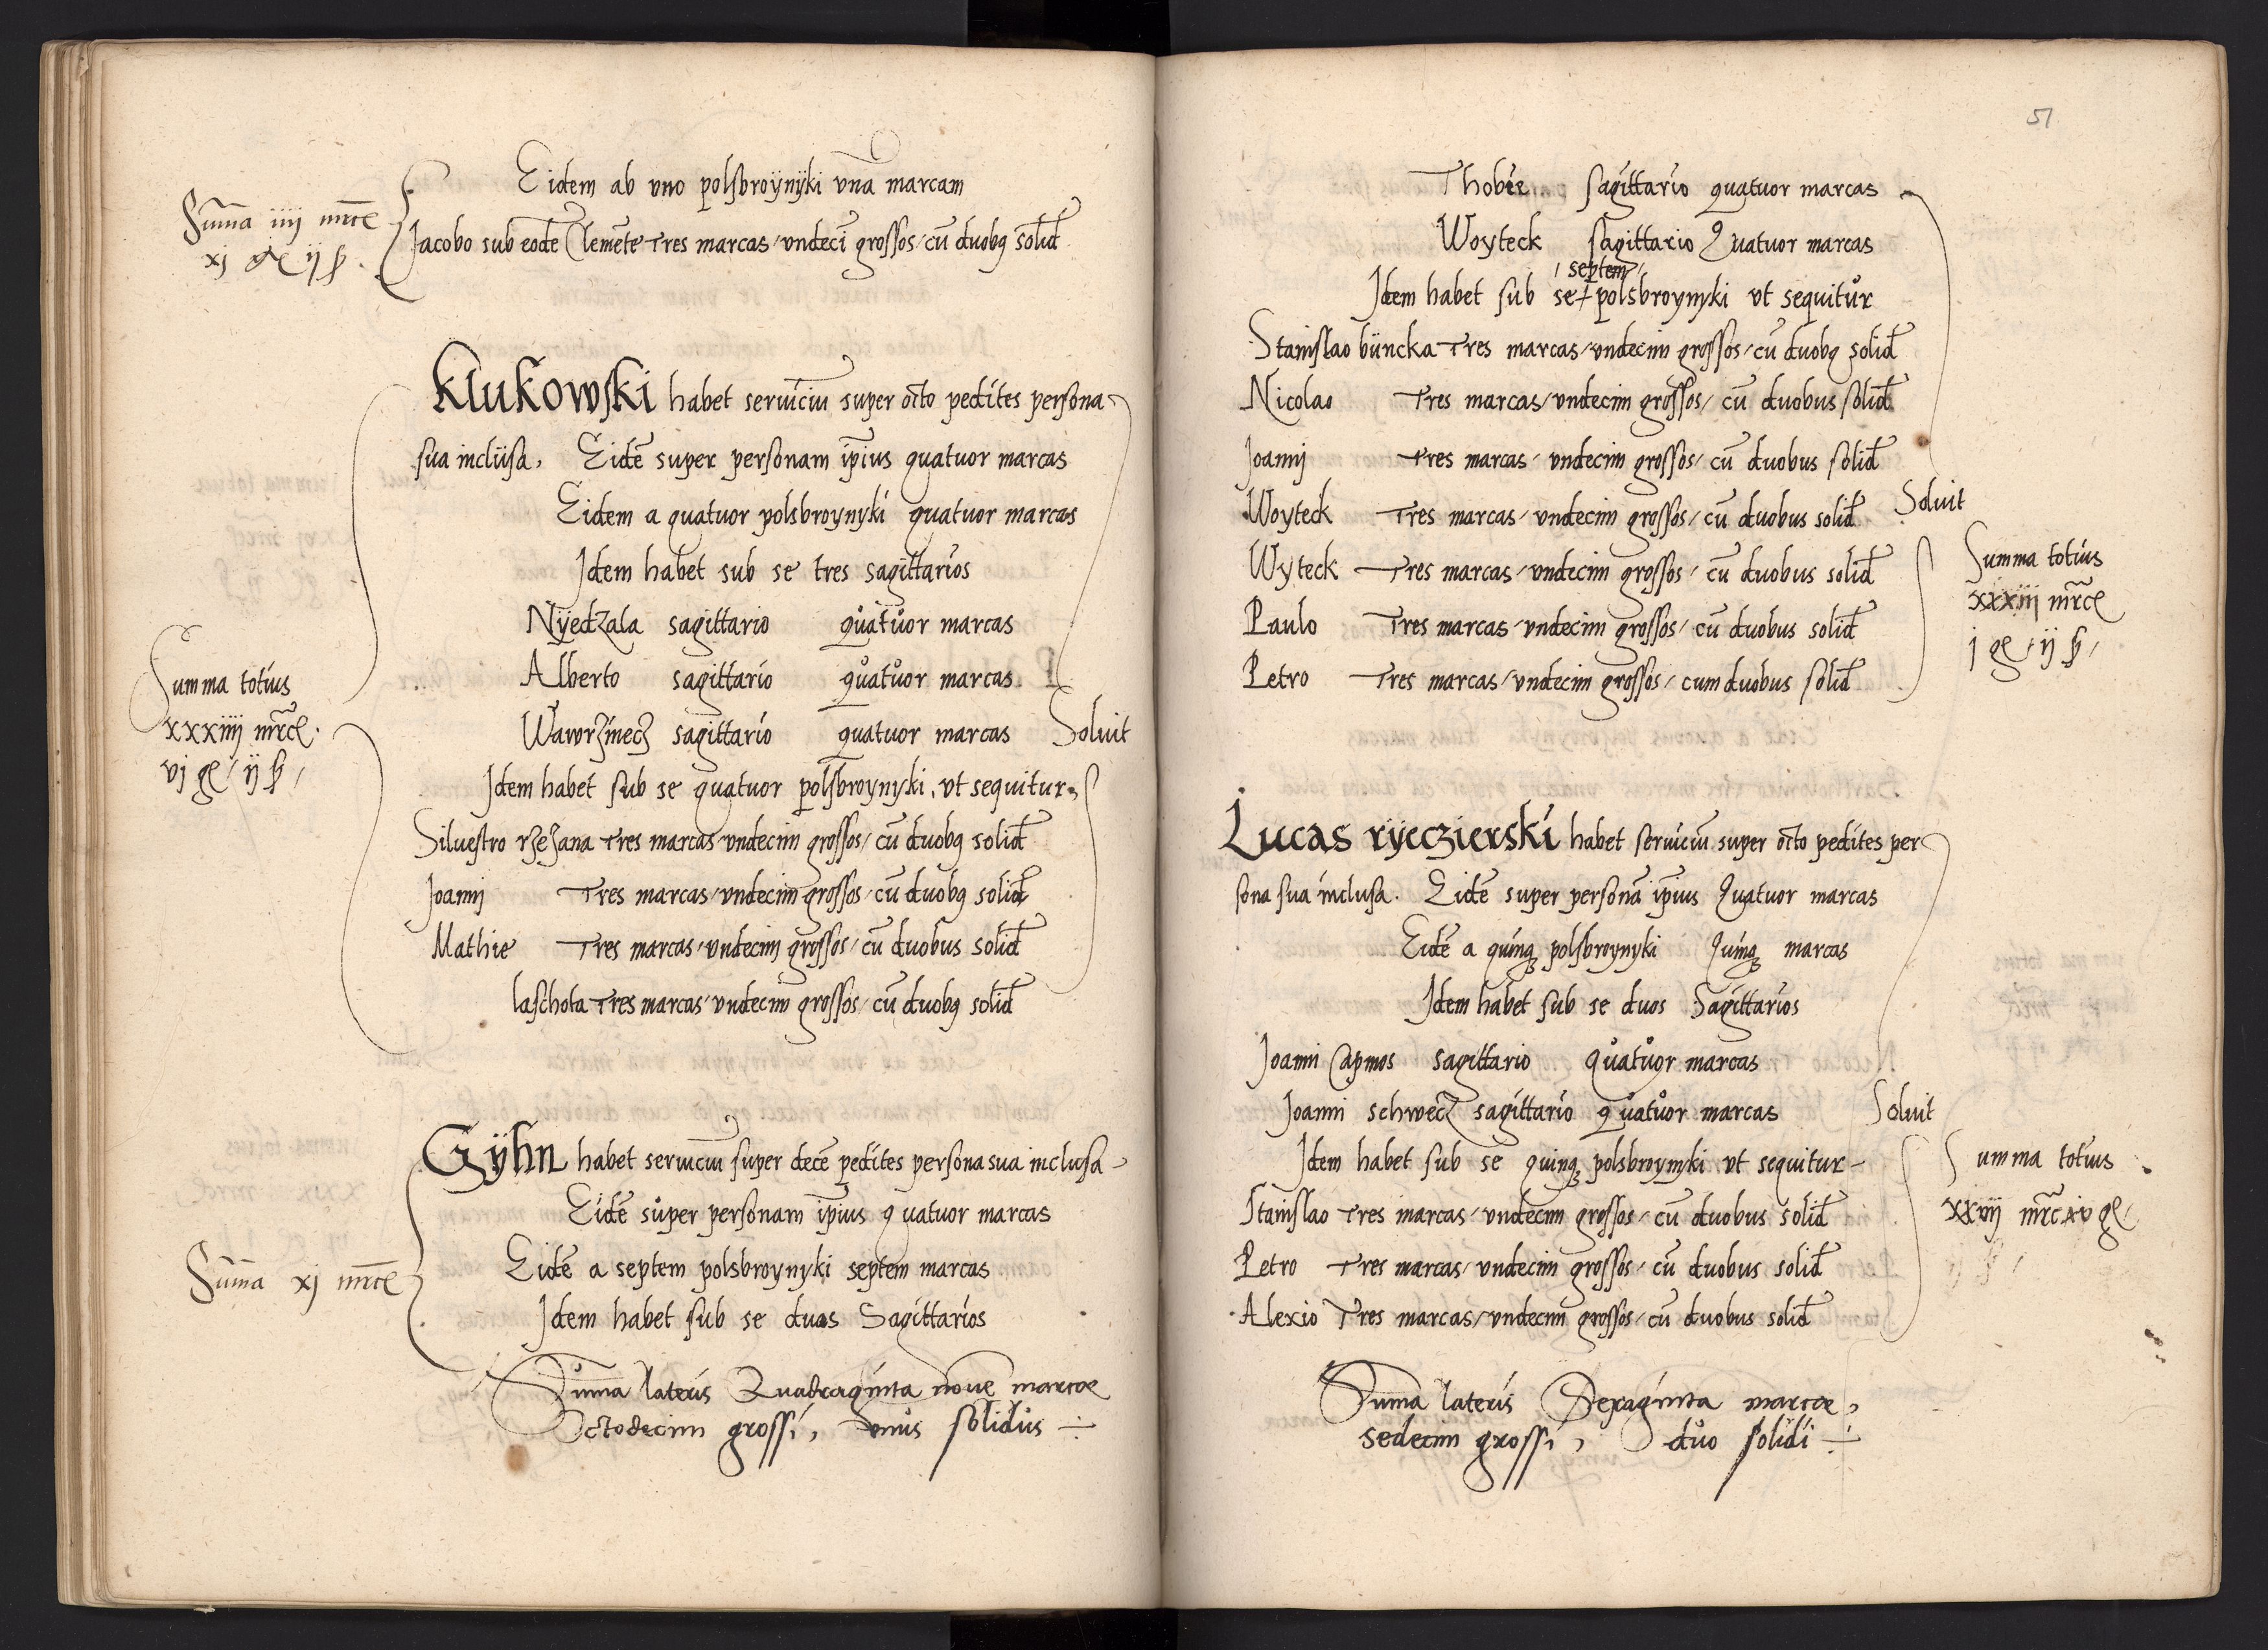 Eidem ab vno polsbroÿnÿki vnā marcam
Sūma iiij mrce
xj gͤ ij ꝑ.
Jacobo sub eodē Clemēte Tres marcas / vndecī grossos / cū duobꝫ solid
Klukowski habet seruiciū super octo pedites persona
sua inclusa, Eidē super personam ipīus quatuor marcas
Eidem a quatuor polsbroynyki quatuor marcas
Idem habet sub se tres sagittarios
Nÿedzala sagittario quatuor marcas
Alberto sagittario quatuor marcas
Wawrzinecz sagittario quatuor marcas Soluit
Summa totius
xxxiiij mrce.
vj ge / ij
Idem habet sub se quatuor polsbroynyki, vt sequitur
Siluestro rzezana Tres marcas vndecim grossos / cū duobꝫ solid
Joanni Tres marcas / vndecim grossos / cū duobꝫ solid
Mathie Tres marcas / vndecim grossos / cū duobus solid
laschota Tres marcas / vndecim grossos / cū duobꝫ solid
Gÿhn habet seruiciū super decē pedites persona sua inclusa
Eidē super personam ipīus quatuor marcas
Eidē a septem polsbroynyki septem marcas
Sūma xj mrce
Idem habet sub se duos Sagittarios
Sūma lateris Quadraginta nouē marce
Octodecim grossi, vnus solidus
51
Thobie sagittario quatuor marcas
Woyteck sagittario Quatuor marcas
septem
Idem habet sub se polsbroynyki vt sequitur
Stanislao büncka Tres marcas / vndecim grossos / cū duobꝫ solid
Nicolao Tres marcas / vndecim grossos / cū duobus solid
Joanni Tres marcas / vndecim grossos / cū duobus solid
Woyteck Tres marcas / vndecim grossos / cū duobus solid Soluit
Wyteck Tres marcas / vndecim grossos / cū duobus solid
Paulo Tres marcas / vndecim grossos / cū duobus solid
Petro Tres marcas / vndecim grossos / cum duobus solid
Summa totius
xxxiij mrce
j ge / ij
Lucas rÿeczierski habet seruiciū super octo pedites per
sona sua inclusa. Eidē super personā ipīus Quatuor marcas
Eidē a quinqꝫ polsbroynyki Quinqꝫ marcas
Idem habet sub se duos Sagittarios
Joanni Capmos sagittario Quatuor marcas
Joanni schwecz sagittario quatuor marcas Soluit
Idem habet sub se quinqꝫ polsbroynyki vt sequitur
Stanislao Tres marcas / vndecim grossos / cū duobus solid
Petro Tres marcas / vndecim grossos / cū duobus solid
Alexio Tres marcas / vndecim grossos / cū duobus solid
Summa totius
xxvij mrc xv ge
Sūma lateris Sexaginta marce,
sedecim grossi, duo solidi